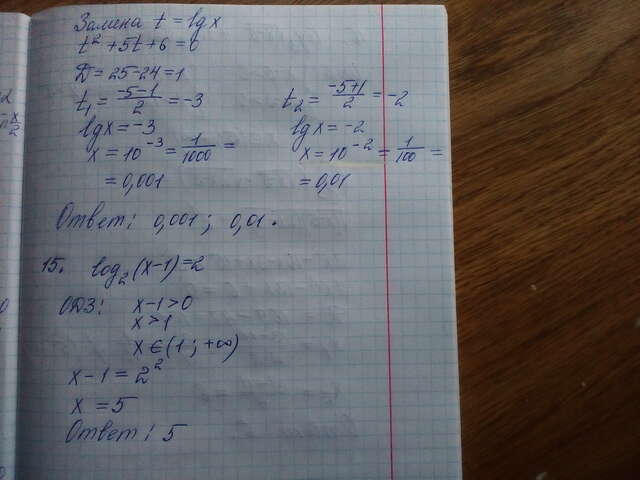 Замена t = lg x
t² + 5t + 6 = 0
D = 25 - 24 = 1
t₁ = (-5-1)/2 = -3
t₂ = (-5+1)/2 = -2
lg x = -3
lg x = -2
x = 10⁻³ = 1/1000 =
x = 10⁻² = 1/100 =
= 0,001
= 0,01
Ответ: 0,001; 0,01.
15. log₂(x-1) = 2
ОДЗ: x-1>0
x>1
x∈(1; +∞)
x-1 = 2²
x = 5
Ответ: 5